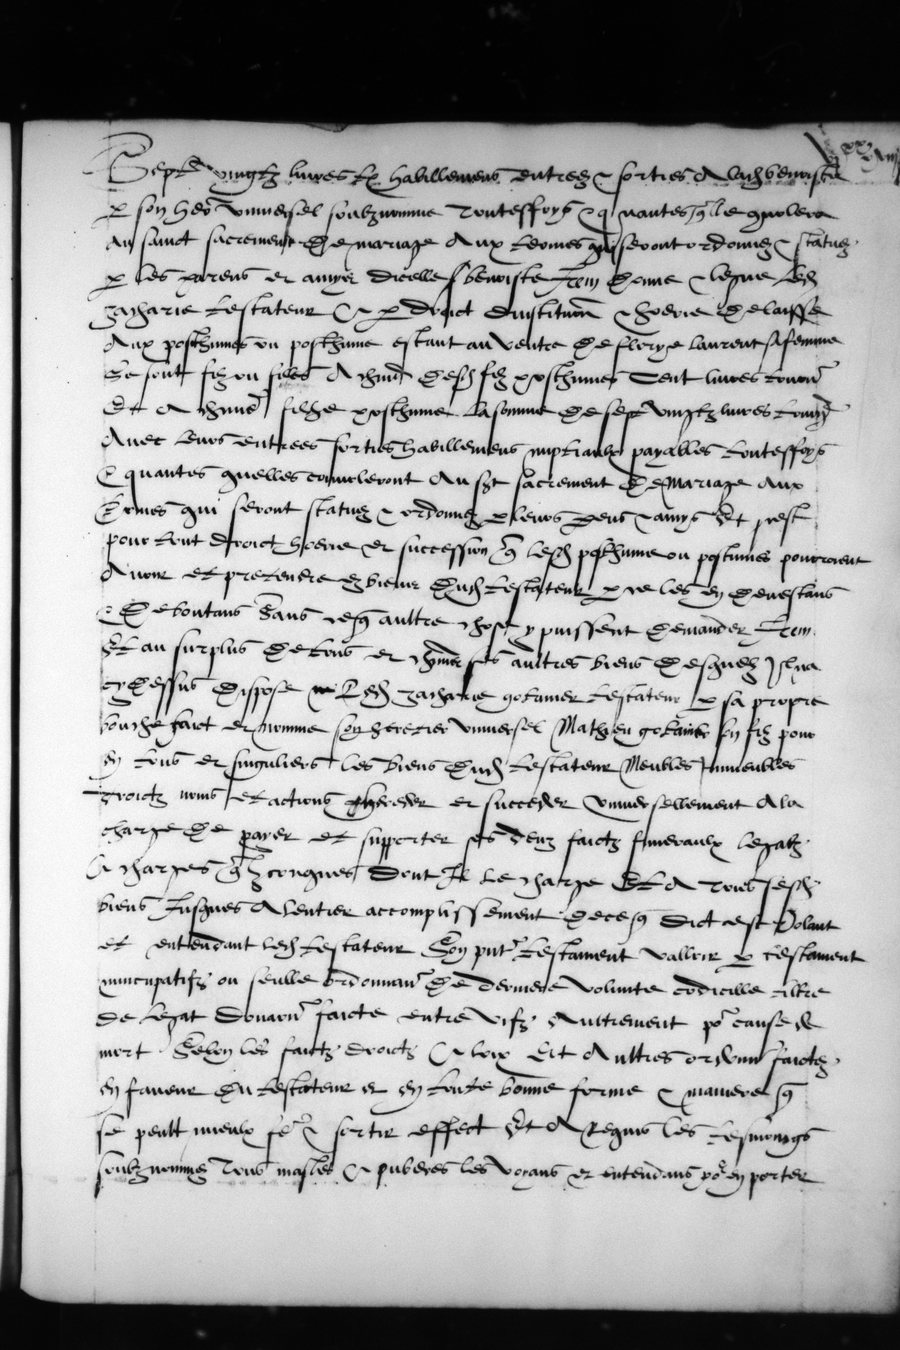 Sept vingtz livres tz habillemens entrees & sorties A lad benoiste
p son her universel soubznomme touteffoys & quantes q elle convolera
Au sainct sacrement de mariage Aux termes qui seront ordonnez & statuez
p les parens et amys dicelle benoiste Item donne & legue led
zacharie testateur & p droict dinstitution & hoerie delaisse
Aux posthumes ou posthume estant au ventre de florye laurent sa femme
Se sont filz ou filles A chun desd filz posthumes Cent livres tourn
Et A chune fille posthume la somme de sept vingtz livres tourn
Avec leurs entrees sorties habillemens nuptiaulx payables touteffoys
& quantes quelles convoleront Au st sacrement de Mariage Aux
termes qui seront statuez & ordonnez p leurs pens & amys Et ce
pour tout droict hoerie et succession q lesd posthume ou postumes pourroient
Avoir et pretendre es biens dud testateur p ce les en devestans
& deboutans Sans q aultre chose y puissent demander Item
Et au surplus de tous et chuns ses aultres biens desquelz Il na
cy dessus dispose led zacharie testateur p sa propre
bouche faict et nomme son heretier universel Mathieu son filz pour
En tous et singuliers les biens dud testateur Meubles Immeubles
droictz noms et actions heriter et succeder universellement A la
charge de payer et supporter ses deuz faictz funeraulx legatz
& charges dont Il le charge Et A tous sesd
biens Jusques A lentier accomplissement de ce q dict est Volant
et entendant led testateur Son pnt testament valloir p testament
nuncupatifz ou seulle ordonnan de derniere volunte codicille tiltre
de legat donaon faicte entre vifz Aultrement po cause de
mort Selon les faictz droictz & loix Et Aultres ordonn faictes
En faveur du testateur et En toute bonne forme & maniere q
se peult mieulx fe & sortir effect Et A Requis les tesmoings
soubznommez tous masles & puberes les voyans & entendans po en porter